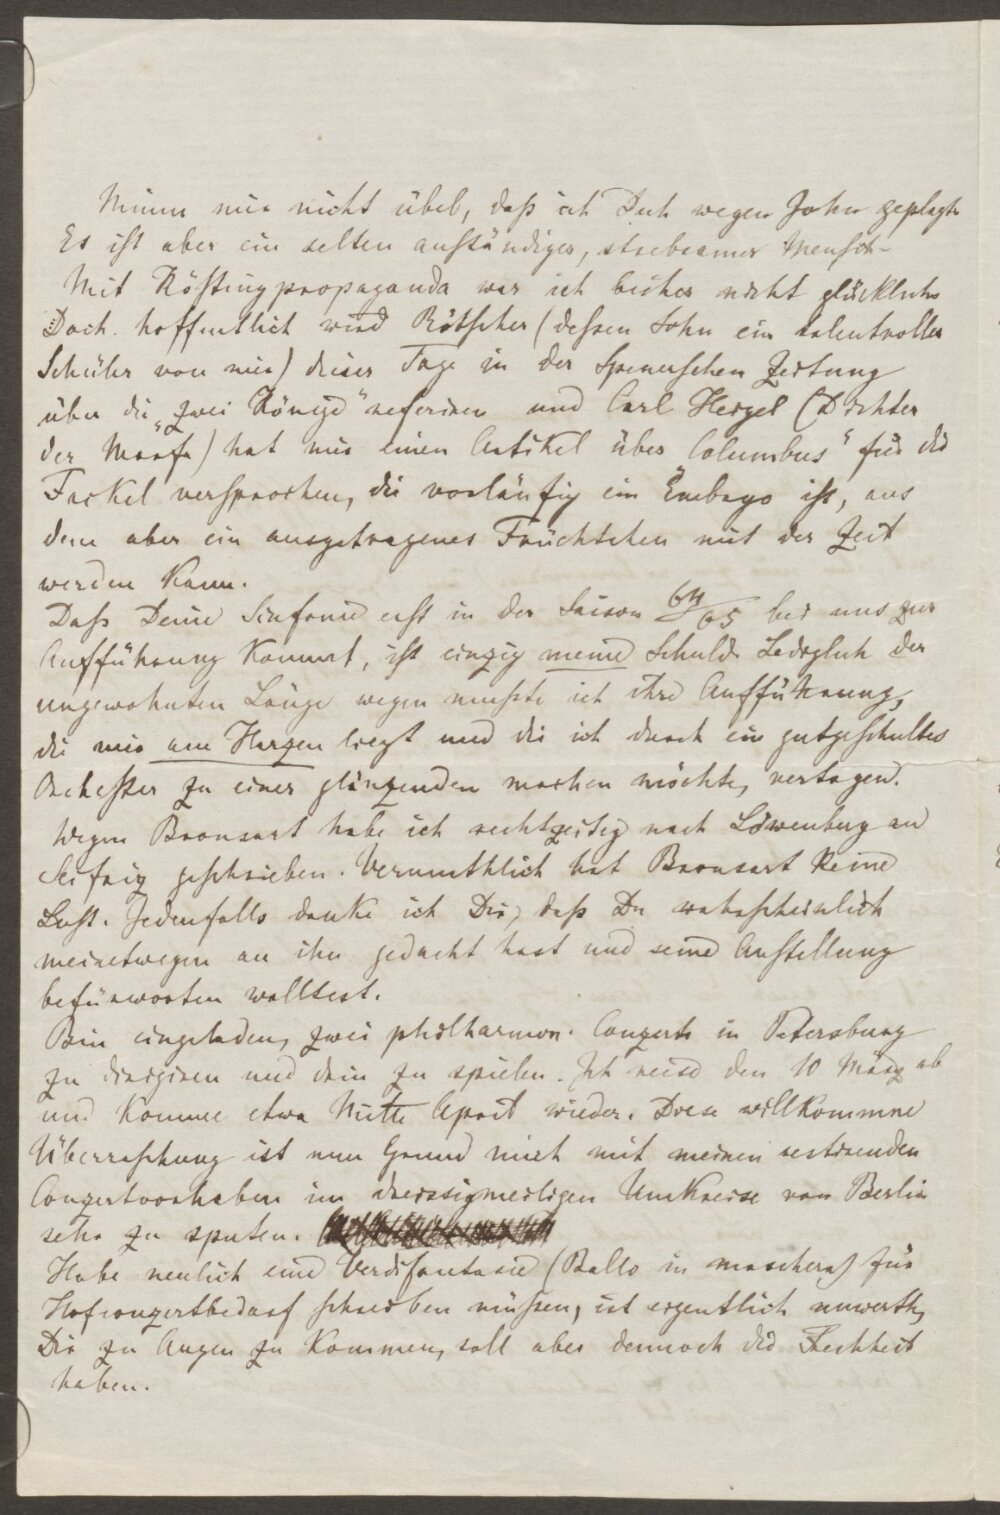 Nimm mir nicht übel, daß ich Dich wegen John geplagt.
Es ist aber ein selten anständiger, strebsamer Mensch –
Mit Rößlingpropaganda war ich bisher nicht glücklich.
Doch hoffentlich wird Rötscher (dessen Sohn ein talentvoller
Schüler von mir) dieser Tage in der Spenerschen Zeitung
über die „zwei Könige“ referiren und Carl Heigel (Dichter
der Marfa) hat mir einen Artikel über Columbus“ für die
Fackel versprochen, die vorläufig ein Embryo ist, aus
dem aber ein ausgetragenes Früchtchen mit der Zeit
werden kann.
Daß Deine Sinfonie erst in der Saison 64/65 bei uns zur
Aufführung kommt, ist einzig meine Schuld. Lediglich der
ungewohnten Länge wegen mußte ich ihre Aufführung,
die mir am Herzen liegt und die ich durch ein gutgeschultes
Orchester zu einer glänzenden machen möchte, vertagen.
Wegen Bronsart habe ich rechtzeitig nach Löwenberg an
Seifriz geschrieben. Vermuthlich hat Bronsart keine
Lust. Jedenfalls danke ich Dir, daß Du wahrscheinlich
meinetwegen an ihn gedacht hast und seine Anstellung
befürworten wolltest.
Bin eingeladen, zwei philharmon. Conzerte in Petersburg
zu dirigiren und drin zu spielen. Ich reise den 10 März ab
und komme etwa Mitte April wieder. Diese willkommne
Überraschung ist nun Grund mich mit meinen restirenden
Conzertvorhaben im dreissigmeiligen Umkreise von Berlin
sehr zu sputen.
Habe neulich eine Verdifantasie (Ballo in maschera) für
Hofconzertbedarf schreiben müssen, ist eigentlich unwerth,
Dir zu Augen zu kommen, soll aber dennoch die Frechheit
haben.